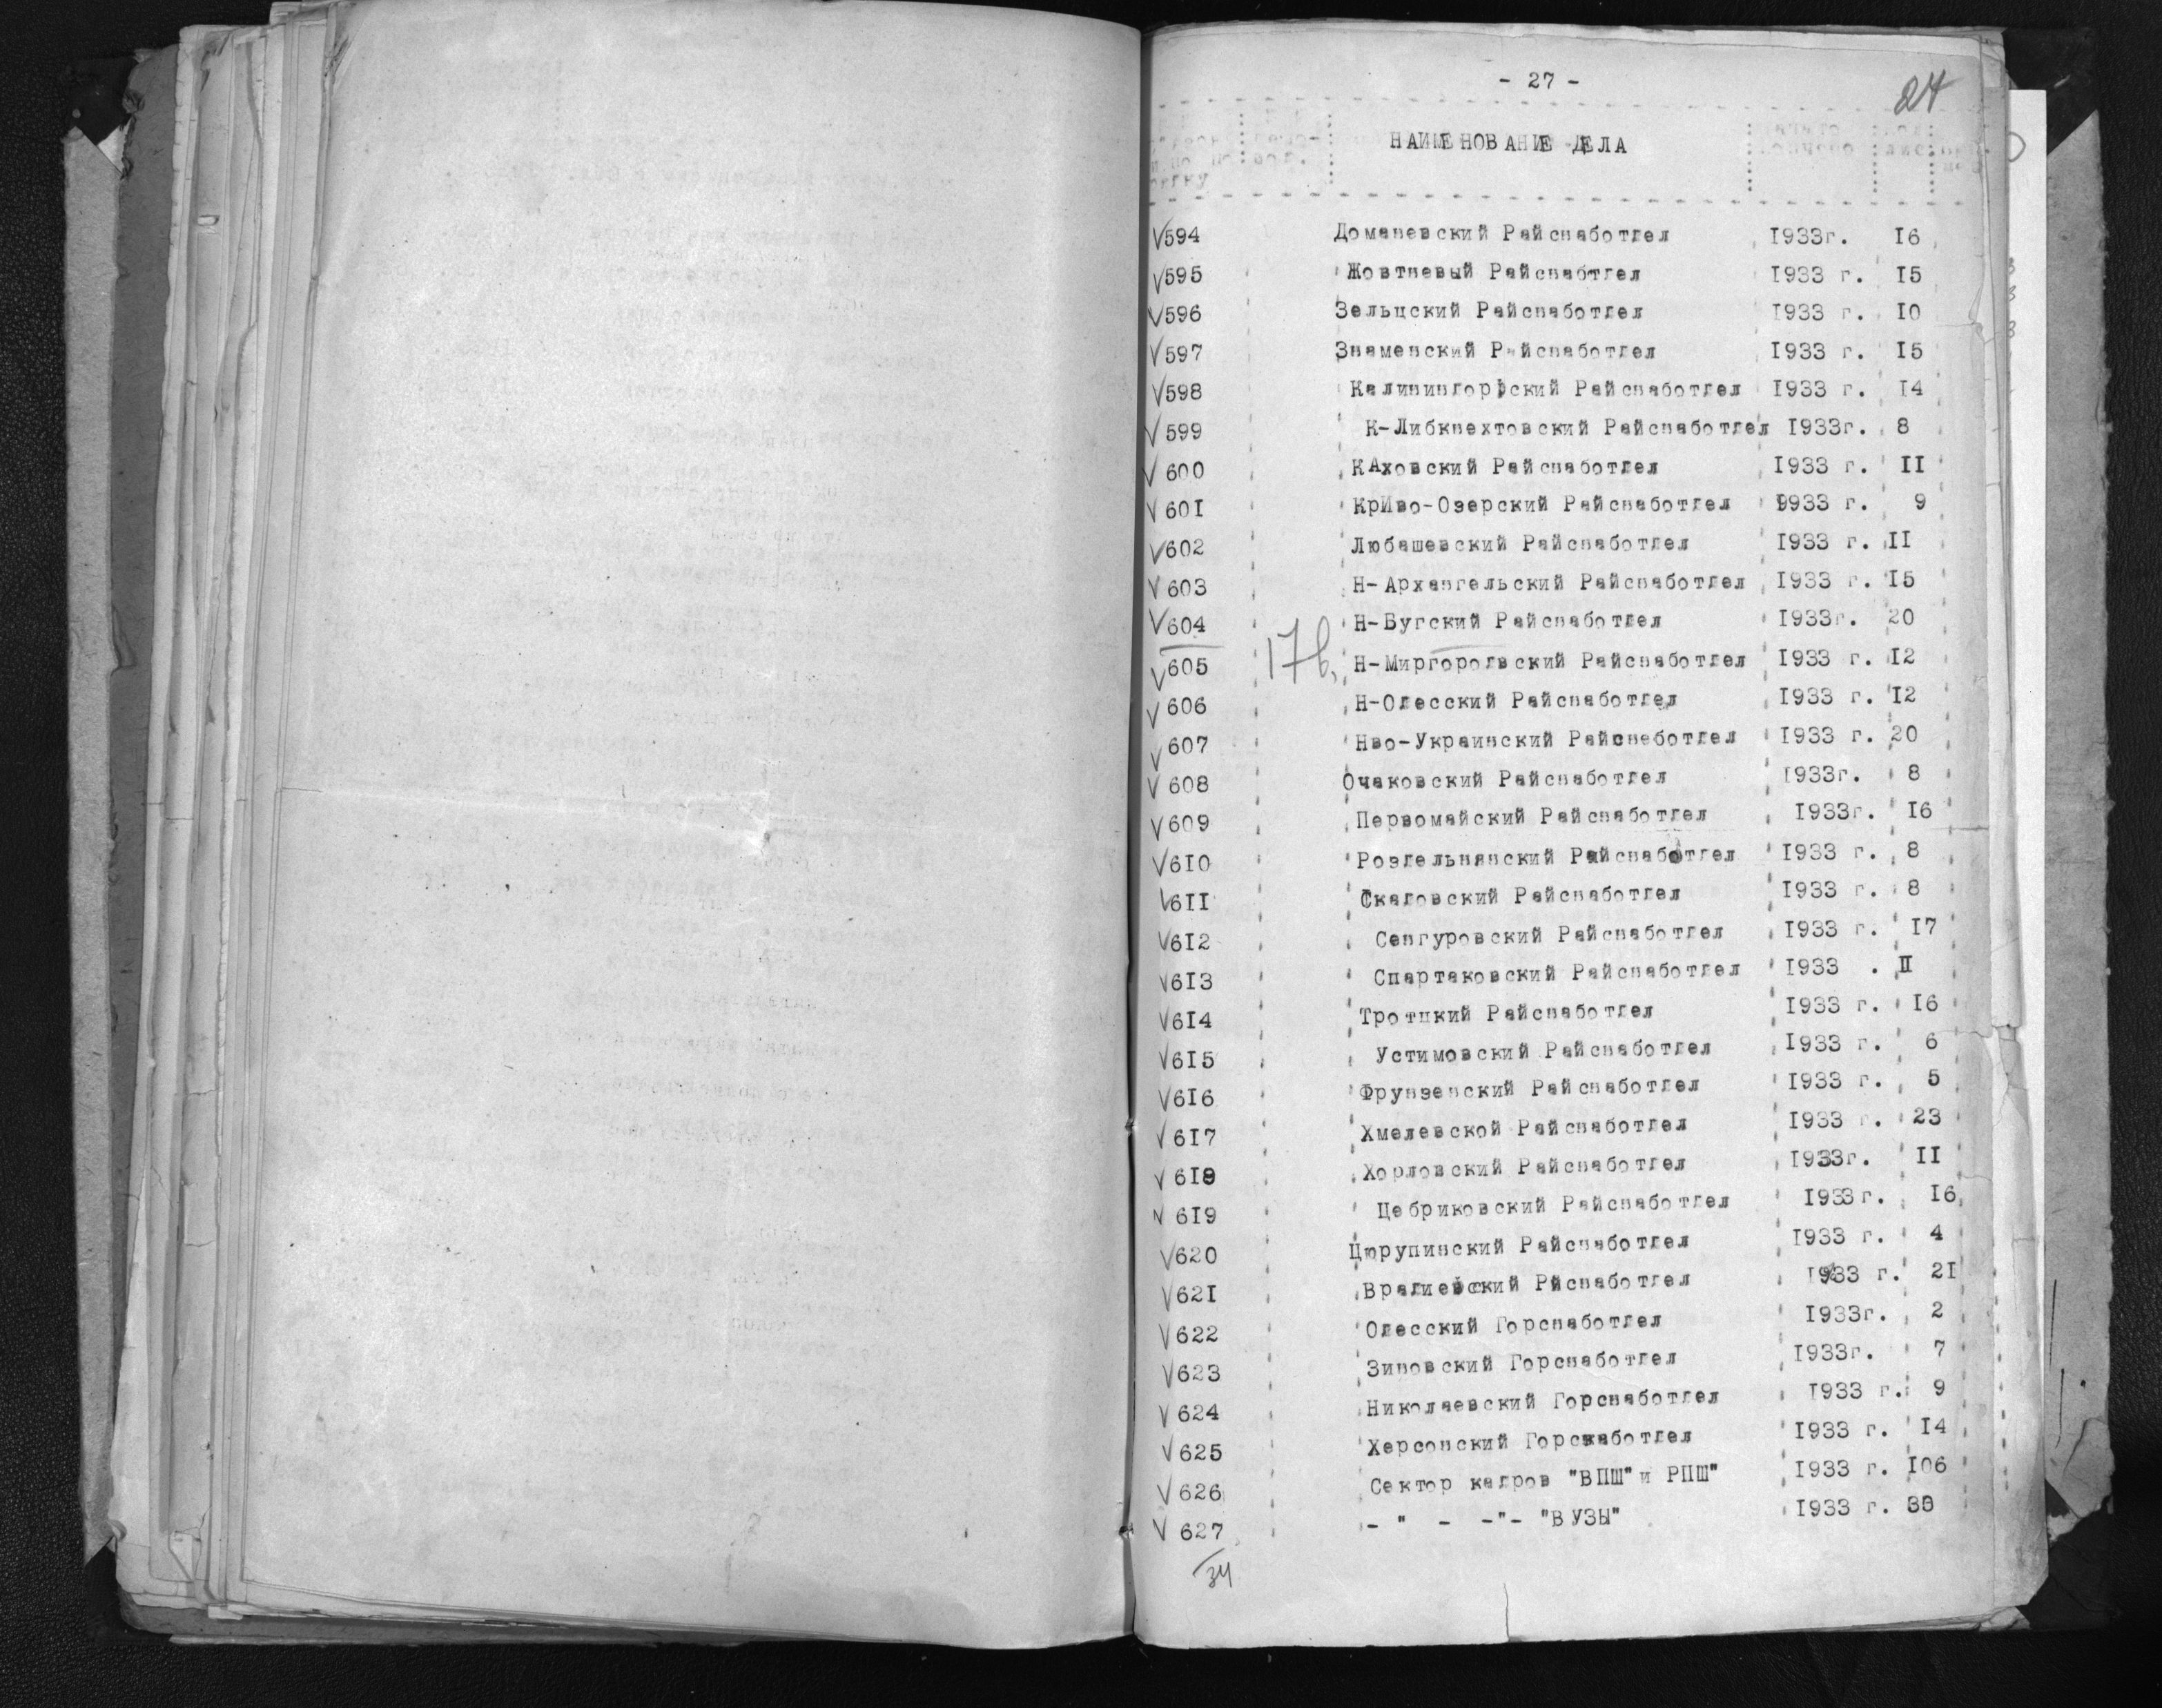 - 27 -
24
НАИМЕНОВАНИЕ ДЕЛА
594 Доманевский Райснаботдел 1933г. 16
595 Жовтневый Райснабтдел 1933 г. 15
596 Зельцский Райснаботдел 1933 г. 10
597 Знаменский Райснаботдел 1933 г. 15
598 Калининдорфский Райснаботдел 1933 г. 14
599 К-Либкнехтовский Райснаботдел 1933г. 8
600 КАховский Райснаботдел 1933 г. II
601 КрИво-Озерский Райснаботдел 9933 г. 9
602 Любашевский Райснаботдел 1933 г. II
603 Н-Архангельский Райснаботдел 1933 г. 15
604 Н-Бугский Райснаботдел 1933г. 20
17б.
605 Н-Миргородвский Райснаботдел 1933 г. 12
606 Н-Одесский Райснаботдел 1933 г. 12
607 Нво-Украинский Райснеботдел 1933 г. 20
608 Очаковский Райснаботдел 1933г. 8
609 Первомайский Райснаботдел 1933г. 16
610 Роздельнянский Райснаботдел 1933 г. 8
611 Скадовский Райснаботдел 1933 г. 8
612 Сенгуровский Райснаботдел 1933 г. 17
613 Спартаковский Райснаботдел 1933 . II
614 Тротцкий Райснаботдел 1933 г. 16
615 Устимовский Райснаботдел 1933 г. 6
616 Фрунзенский Райснаботдел 1933 г. 5
617 Хмелевской Райснаботдел 1933 г. 23
618 Хорловский Райснаботдел 1933г. II
619 Цебриковский Райснаботдел 1933г. 16
620 Цюрупинский Райснаботдел 1933 г. 4
621 Врадиевский Рйснаботдел 1933 г. 21
622 Одесский Горснаботдел 1933г. 2
623 Зиновский Горснаботдел 1933г. 7
624 Николаевский Горснаботдел 1933 г. 9
625 Херсонский Горснаботдел 1933 г. 14
626 Сектор кадров "ВПШ" и РПШ" 1933 г. 106
627 - " - -"- "ВУЗЫ" 1933 г.
34